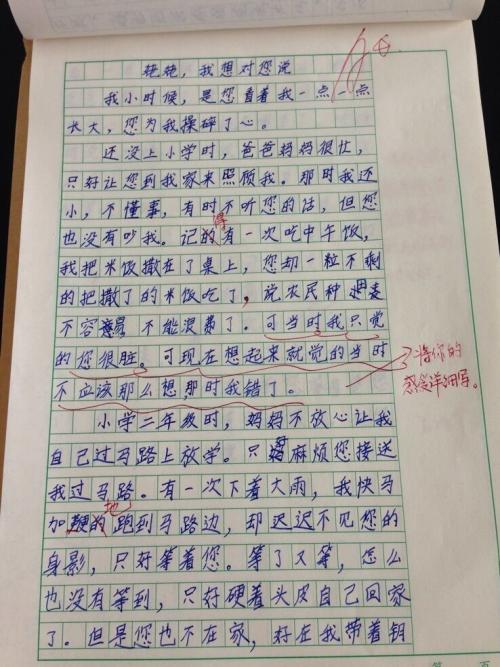 姥姥，我想对您说
我小时候，是您看着我一点一点
长大，您为我操碎了心。
还没上小学时，爸爸妈妈很忙，
只好让您到我家来照顾我。那时我还
小，不懂事，有时不听您的话，但您
得
也没有吵我。记的有一次吃中午饭，
我把米饭撒在了桌上，您却一粒不剩
的把撒了的米饭吃了，说农民种
不容易 不能浪费了。可当时我只觉
的您很脏。可现在想起来就觉的当时
不应该那么想那时我错了。
将你的
感受详细写。
小学二年级时，妈妈不放心让我
自己过马路上放学。只好麻烦您接送
我过马路。有一次下着大雨，我快马
地
加鞭的跑到马路边，却迟迟不见您的
身影，只好等着您。等了又等，怎么
也没有等到，只好硬着头皮自己回家
了。但是您也不在家，好在我带着钥